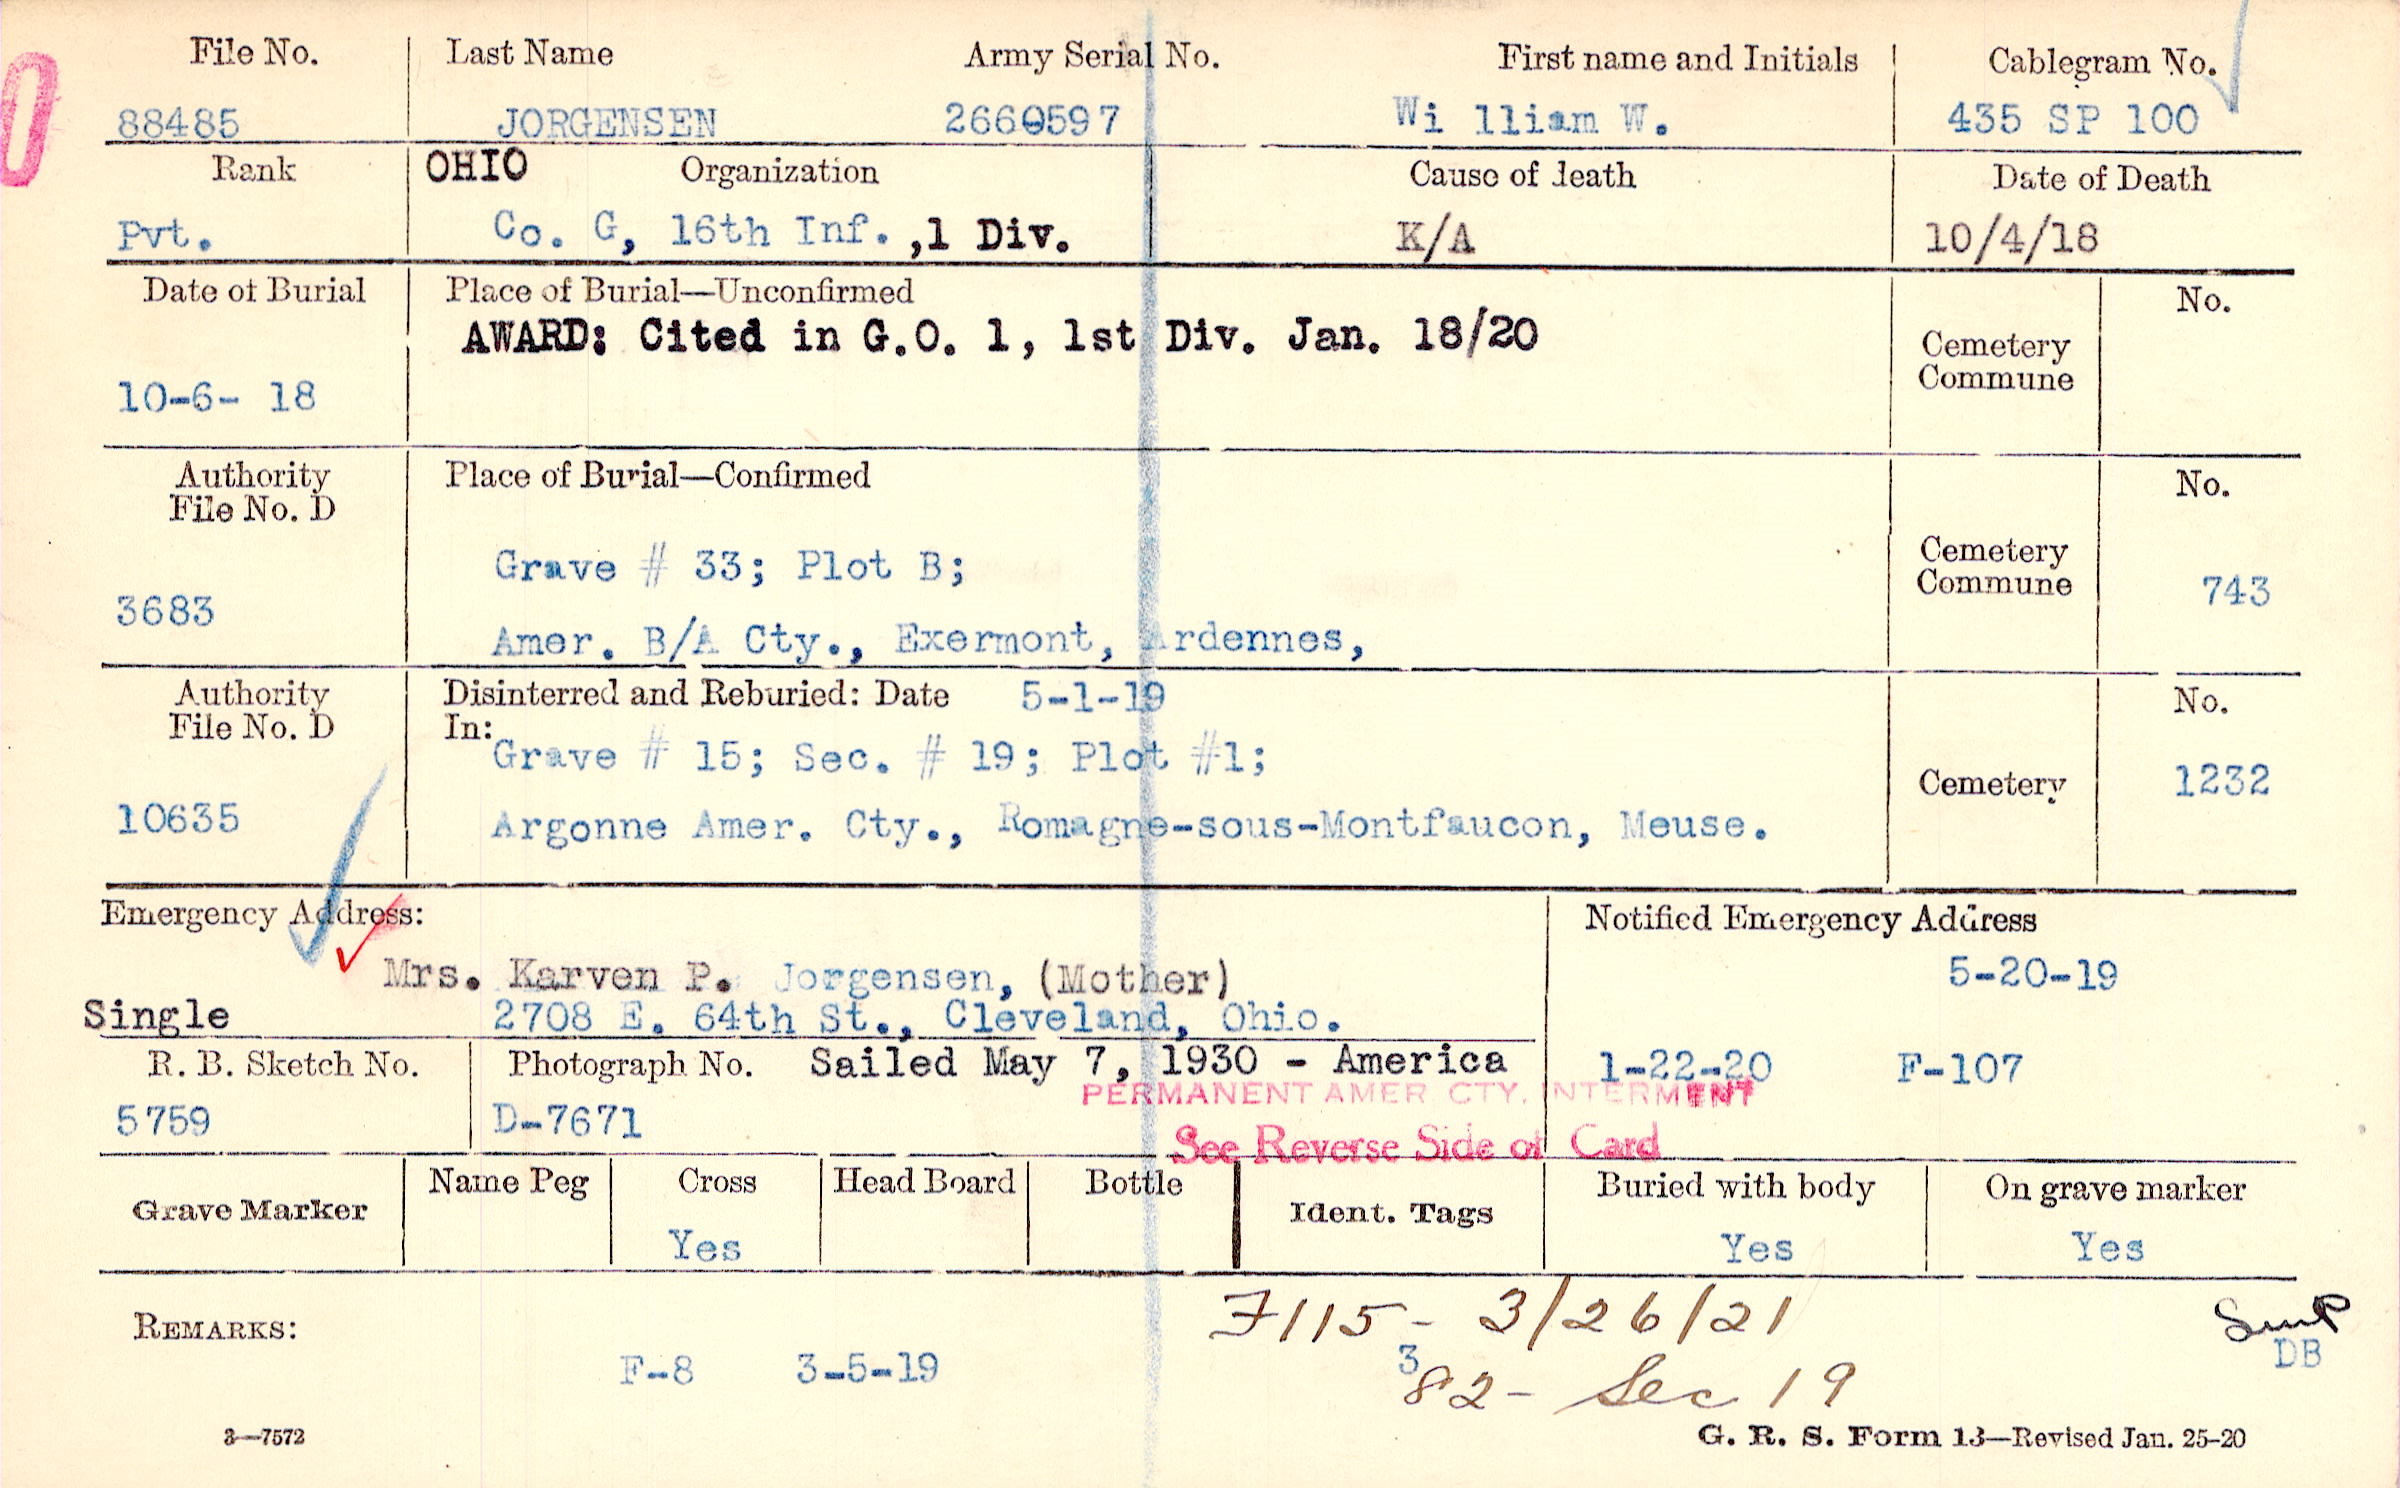 File No. Last Name Army Serial No. First name and Initials Cablegram No.
88485 JORGENSEN 2660597 Wi lliam W. 435 SP 100
Rank OHIO Organization Cause of Death Date of Death
Pvt. Co. G, 16th Inf. ,1 Div. K/A 10/4/18
Date of Burial Place of Burial—Unconfirmed No.
AWARD: Cited in G.O. 1, 1st Div. Jan. 18/20
Cemetery
Commune
10-6- 18
Authority Place of Burial—Confirmed No.
File No. D
Grave # 33; Plot B; Cemetery
Commune 743
3683
Amer. B/A Cty., Exermont, Ardennes,
Authority Disinterred and Reburied: Date 5-1-19 No.
File No. D In:
Grave # 15; Sec. # 19; Plot #1;
Cemetery 1232
10635 Argonne Amer. Cty., Romagne-sous-Montfaucon, Meuse.
Emergency Address: Notified Emergency Address
Mrs. Karven P. Jorgensen, (Mother) 5-20-19
Single 2708 E. 64th St., Cleveland, Ohio.
R. B. Sketch No. Photograph No. Sailed May 7, 1930 - America 1-22-20 F-107
PERMANENT AMER CTY. INTERMENT
5759 D-7671
See Reverse Side of Card
Grave Marker Name Peg Cross Head Board Bottle Ident. Tags Buried with body On grave marker
Yes Yes Yes
F115 - 3/26/21
REMARKS:
DB
F-8 3-5-19 382 - Sec 19
3—7572 G. R. S. Form 13—Revised Jan. 25-20